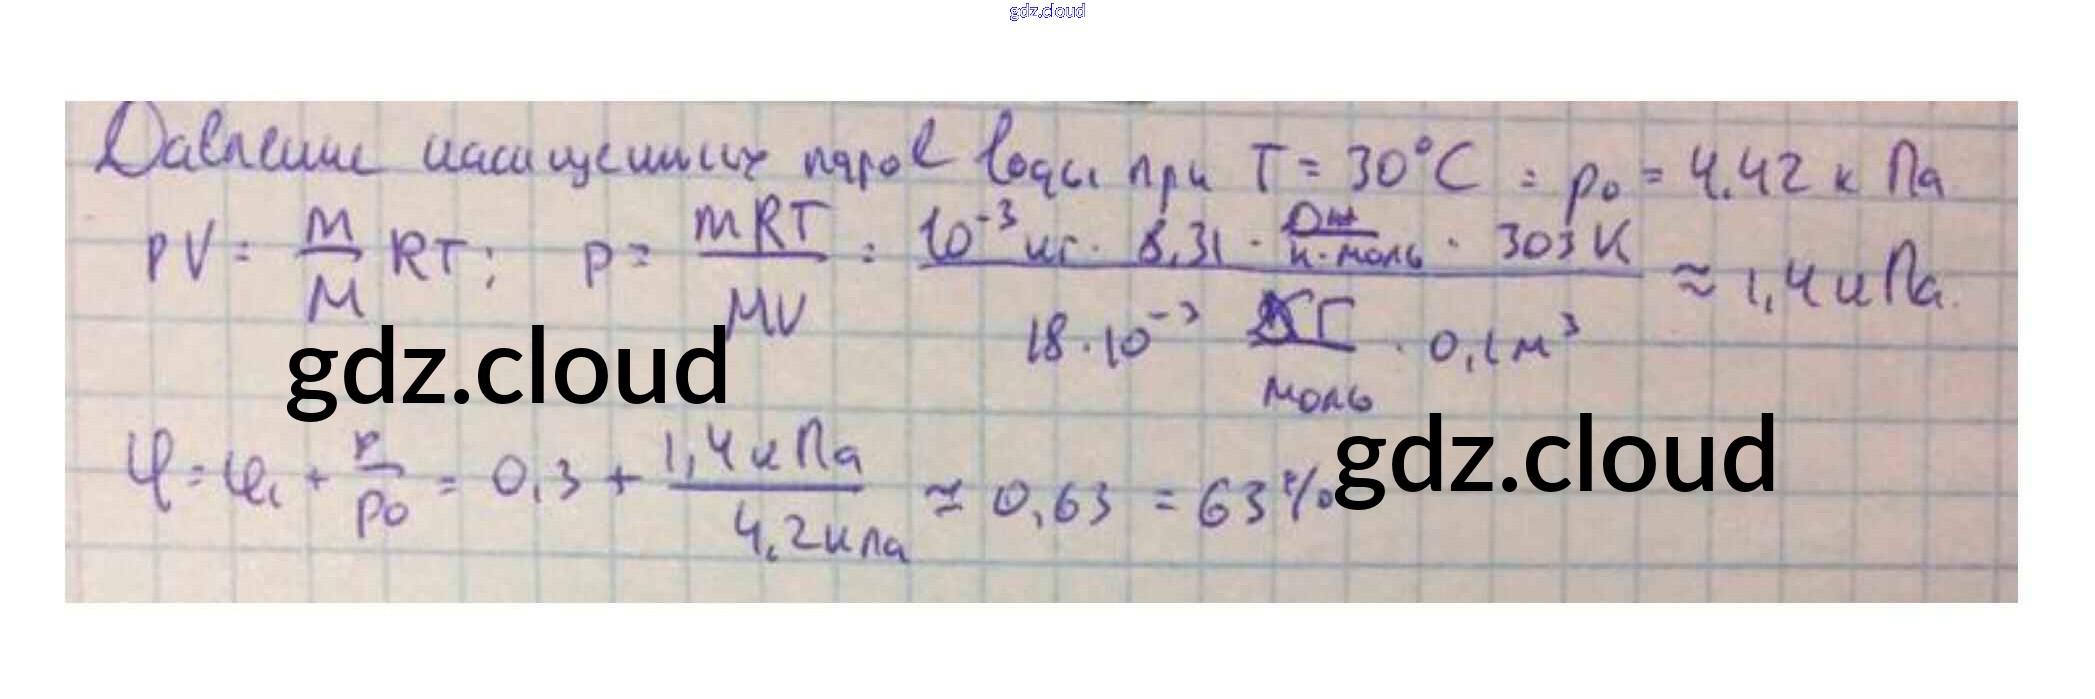 gdz.cloud
Давление насыщенных паров воды при T = 30°C : p₀ = 4.42 кПа
PV = m/M RT; p = mRT/MV = 10⁻³ кг · 8,31 · Дж/К·моль · 303 К / 18·10⁻³ кг/моль · 0,1 м³ ≈ 1,4 кПа.
gdz.cloud
φ = φ₁ + p/p₀ = 0,3 + 1,4 кПа/4,2 кПа ≈ 0,63 = 63%
gdz.cloud